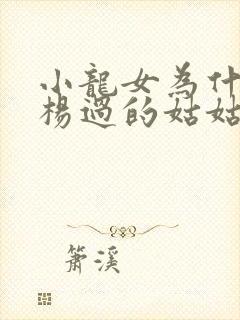 小龍女為什
楊過的姑姑
簫溪